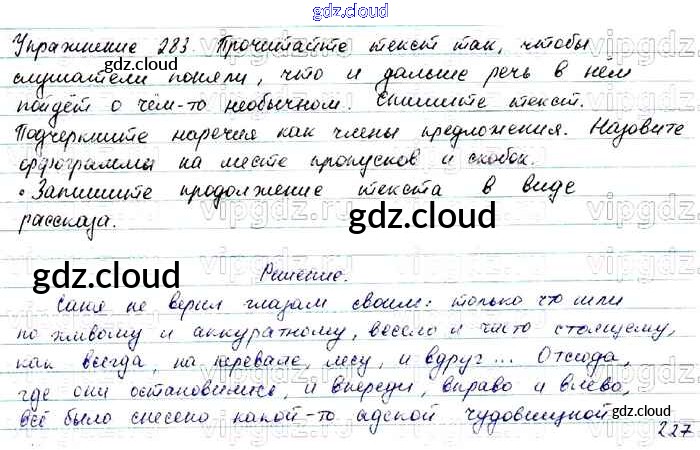 gdz.cloud
Упражнение 283. Прочитайте текст так, чтобы
слушатели поняли, что и дальше речь в нём
пойдёт о чём-то необычном. Спишите текст.
Подчеркните наречия как члены предложения. Назовите
орфограммы на месте пропусков и скобок.
• Запишите продолжение текста в виде
рассказа.
gdz.cloud
gdz.cloud
Решение.
Саня не верил глазам своим: только что шли
по живому и аккуратному, весело и чисто стоящему,
как всегда, на перевале, лесу, и вдруг... Отсюда,
где они остановились, и впереди, вправо и влево,
всё было снесено какой-то адской чудовищной
gdz.cloud
227